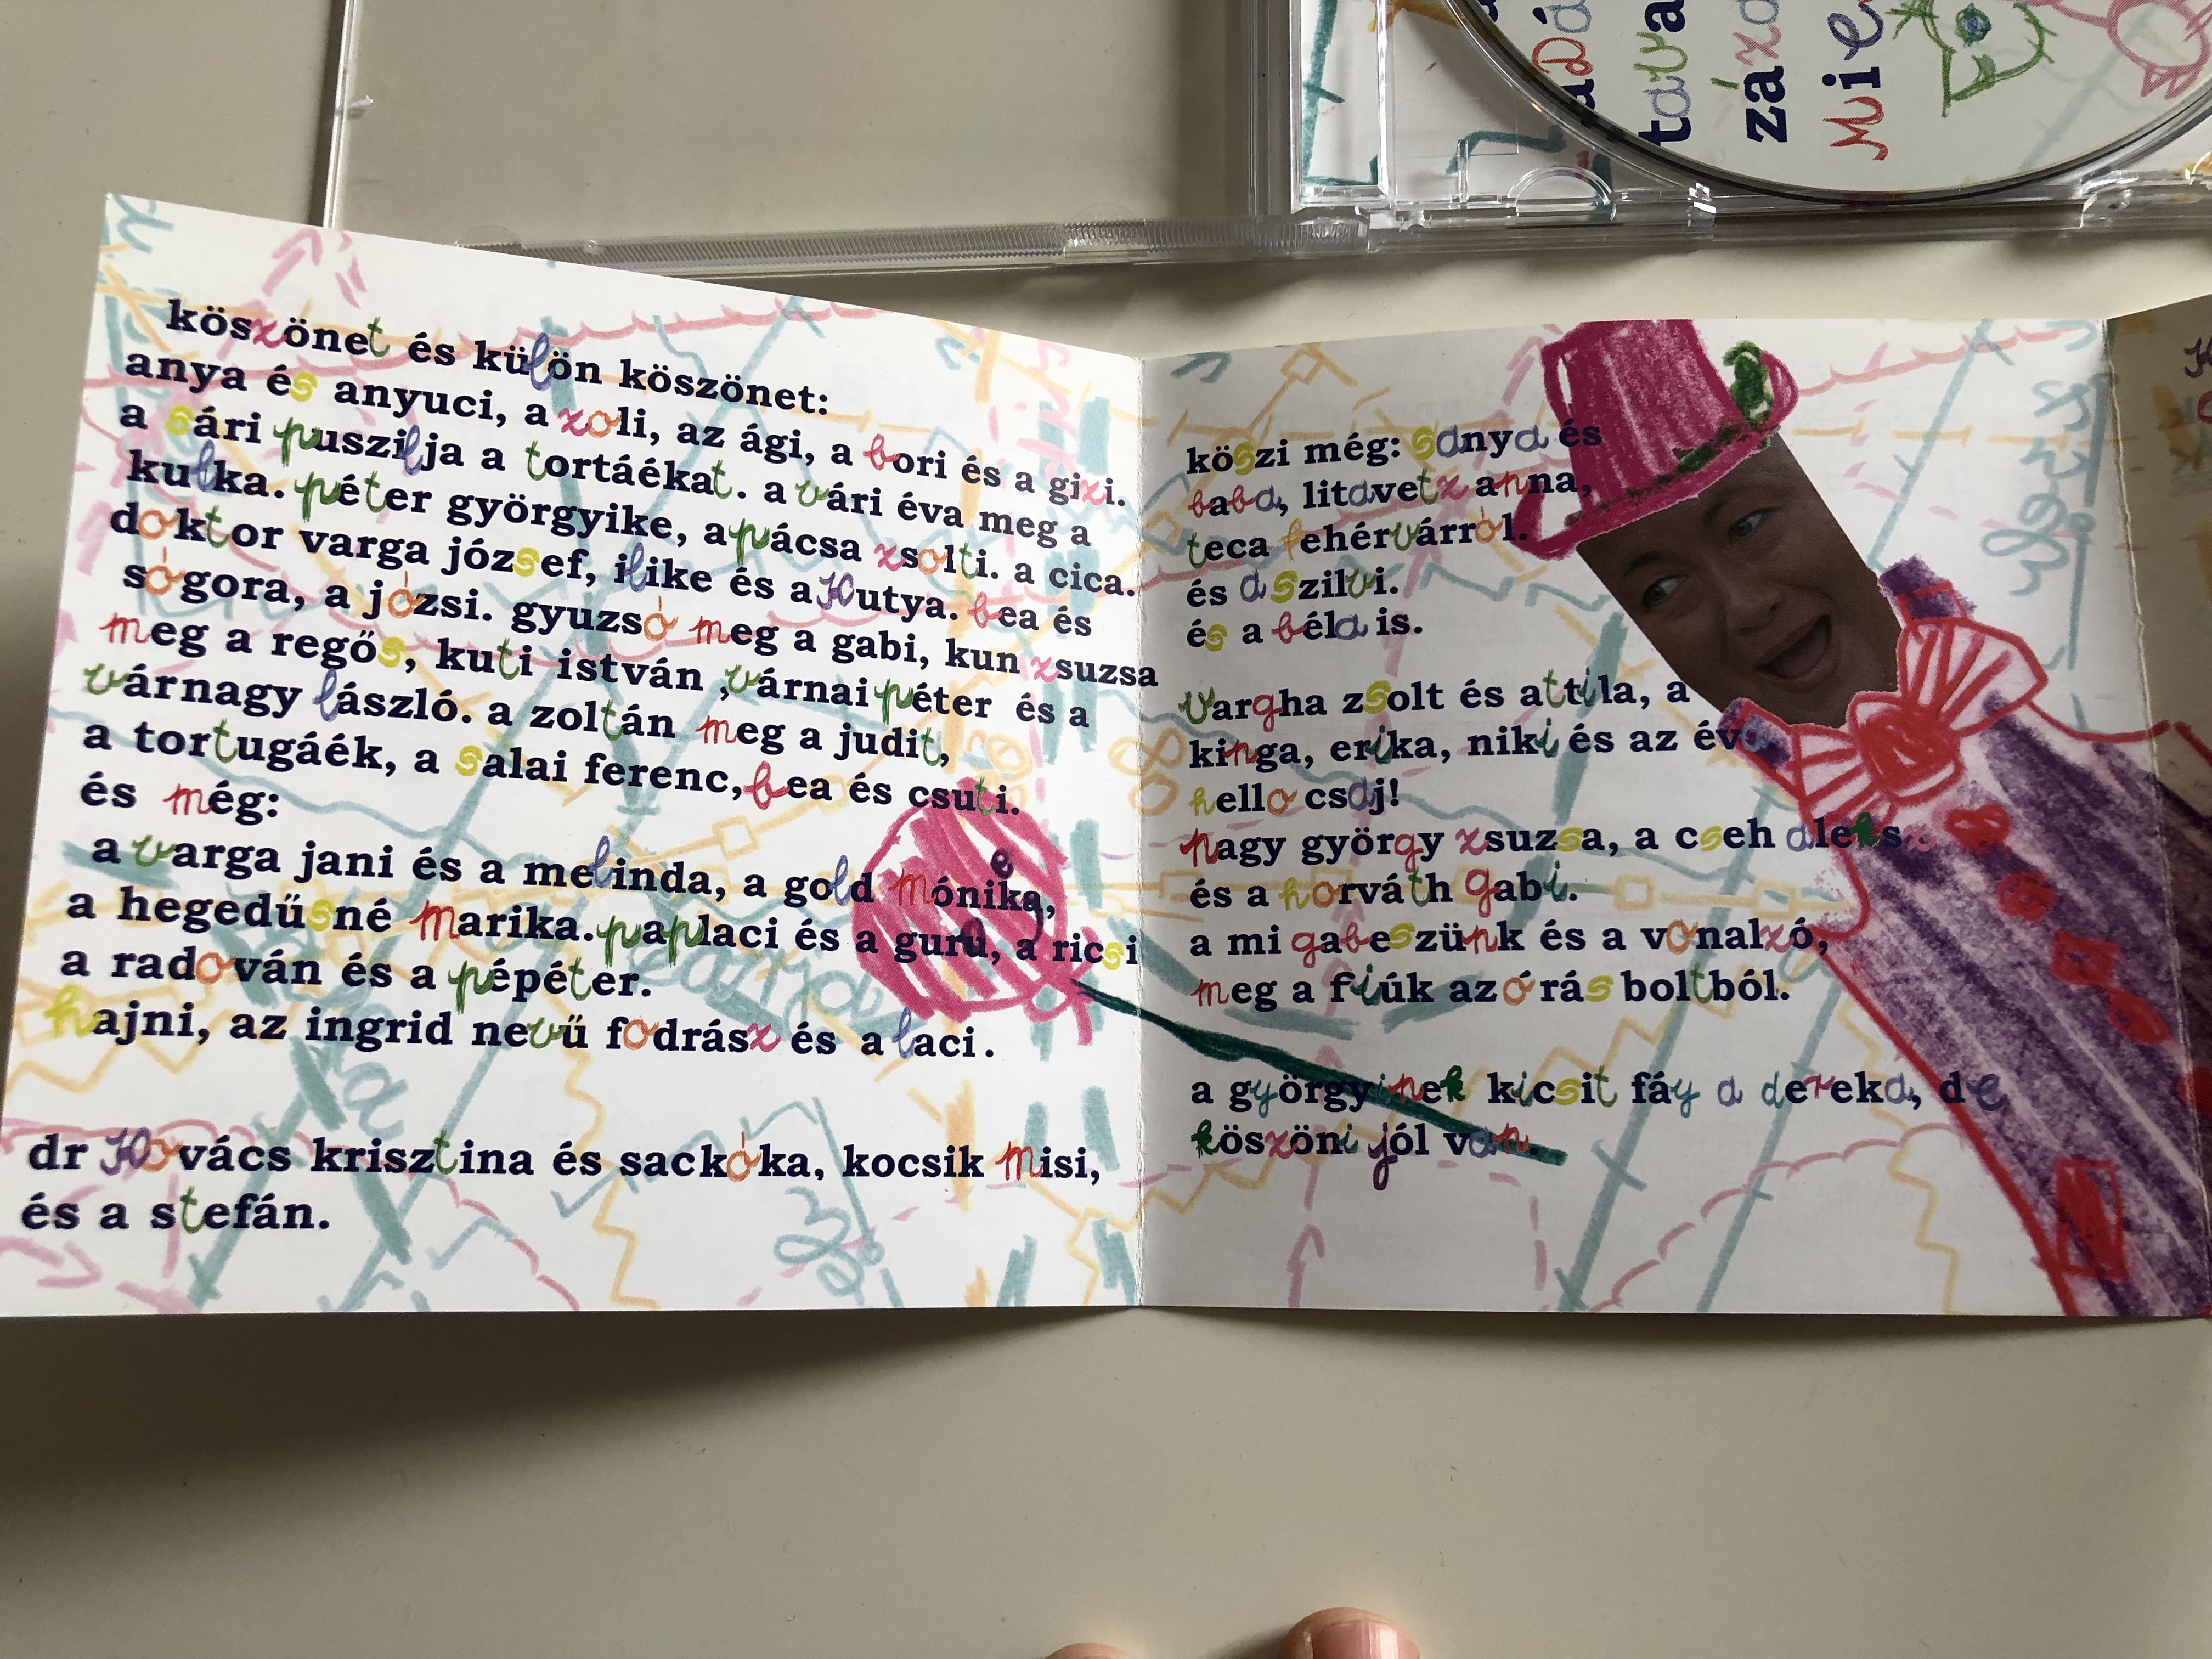 köszönet és külön köszönet:
anya és anyuci, a zoli, az ági, a bori és a gizi.
a sári puszilja a tortáékat. a vári éva meg a
kulka. péter györgyike, a pácsa zsolti. a cica.
doktor varga józsef, ilike és a kutya. bea és
sógora, a józsi. gyuzsó meg a gabi, kun zsuzsa
meg a regős, kuti istván ,várnai péter és a
várnagy lászló. a zoltán meg a judit,
a tortugáék, a salai ferenc, bea és csuti.
és még:
a varga jani és a melinda, a gold mónika,
a hegedűsné marika. pap laci és a guru, a ricsi
a radován és a pépéter.
hajni, az ingrid nevű fodrász és a laci.
dr kovács krisztina és sackóka, kocsik misi,
és a stefán.
köszi még: sanya és
baba, litavetz anna,
teca fehérvárról.
és a szilvi.
és a béla is.
vargha zsolt és attila, a
kinga, erika, niki és az éva
hello csaj!
nagy györgy zsuzsa, a cseh aleks..
és a horváth gabi.
a mi gabeszünk és a vonalzó,
meg a fiúk az órás boltból.
a györgyinek kicsit fáy a dereka, de
köszöni jól van.
tava
záza
mie